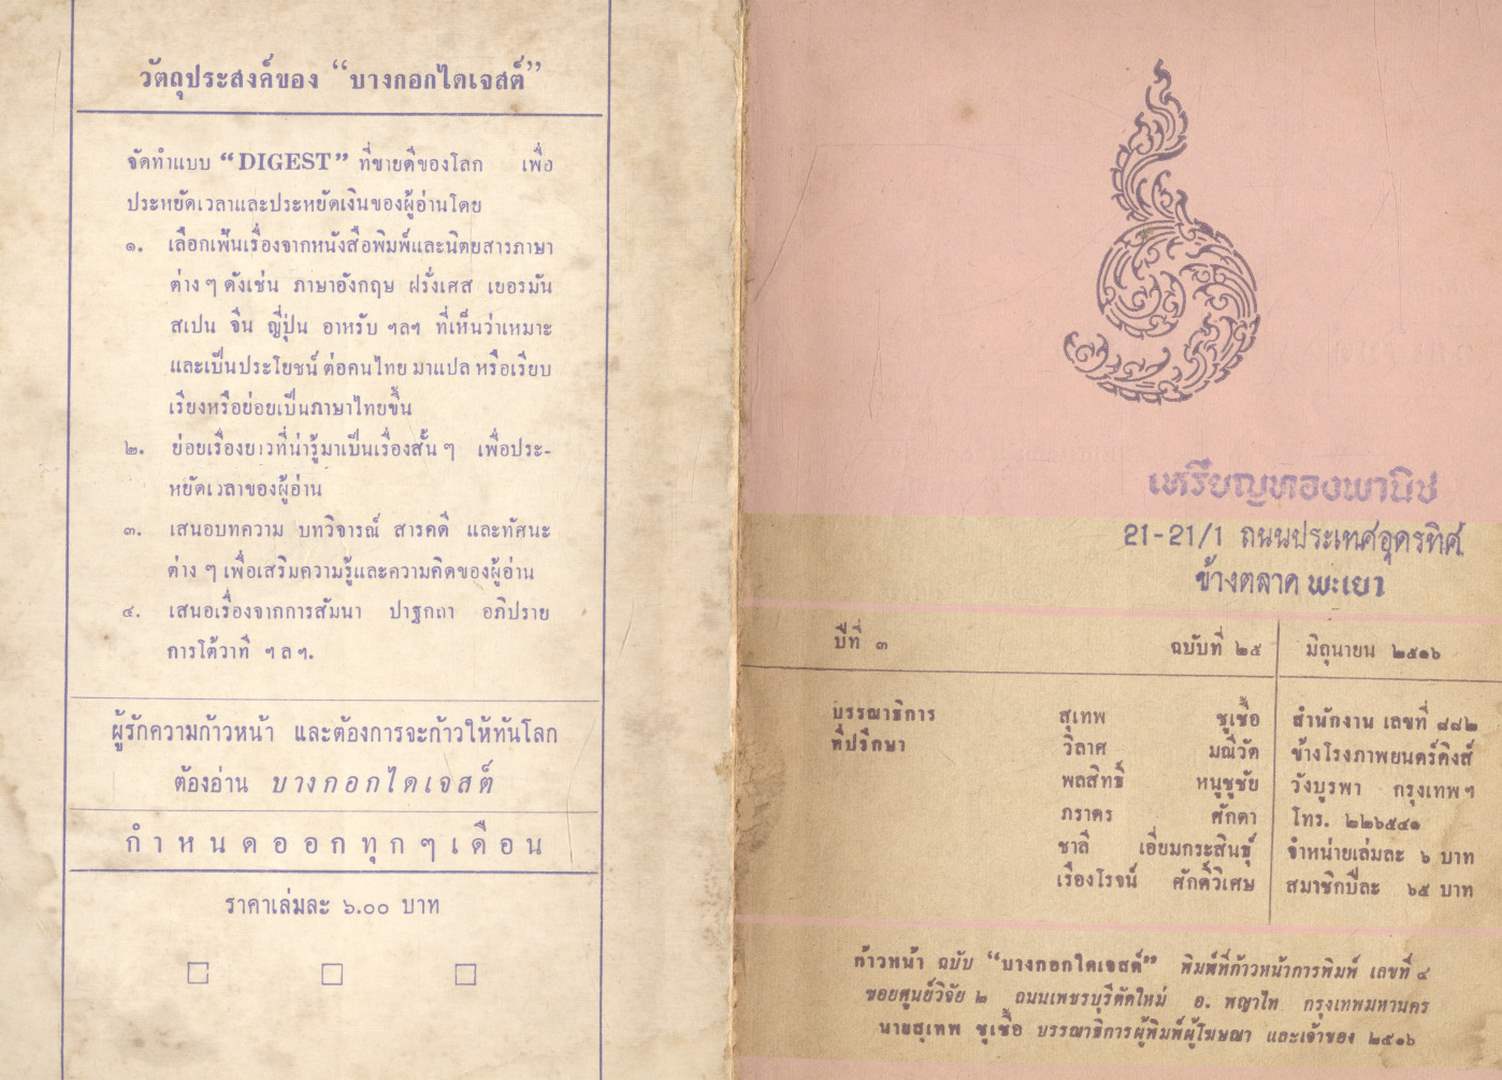 วัตถุประสงค์ของ “บางกอกไดเจสต์”
จัดทำแบบ “DIGEST” ที่ขายดีของโลก เพื่อ
ประหยัดเวลาและประหยัดเงินของผู้อ่านโดย
๑. เลือกเฟ้นเรื่องจากหนังสือพิมพ์และนิตยสารภาษา
ต่าง ๆ ดังเช่น ภาษาอังกฤษ ฝรั่งเศส เยอรมัน
สเปน จีน ญี่ปุ่น อาหรับ ฯลฯ ที่เห็นว่าเหมาะ
และเป็นประโยชน์ ต่อคนไทย มาแปล หรือเรียบ
เรียงหรือย่อยเป็นภาษาไทยขึ้น
๒. ย่อยเรื่องยาวที่น่ารู้มาเป็นเรื่องสั้น ๆ เพื่อประ-
หยัดเวลาของผู้อ่าน
๓. เสนอบทความ บทวิจารณ์ สารคดี และทัศนะ
ต่าง ๆ เพื่อเสริมความรู้และความคิดของผู้อ่าน
๔. เสนอเรื่องจากการสัมนา ปาฐกถา อภิปราย
การโต้วาที ฯ ล ฯ.
ผู้รักความก้าวหน้า และต้องการจะก้าวให้ทันโลก
ต้องอ่าน บางกอกไดเจสต์
กำหนดออกทุกๆเดือน
ราคาเล่มละ ๖.๐๐ บาท
เหรียญทองพานิช
21-21/1 ถนนประเทศอุดรทิศ
ข้างตลาด พะเยา
ปีที่ ๓ ฉบับที่ ๒๕ มิถุนายน ๒๕๑๖
บรรณาธิการ สุเทพ ชูเชื้อ สำนักงาน เลขที่ ๘๘๒
ที่ปรึกษา วิลาศ มณีวัต ข้างโรงภาพยนตร์คิงส์
พลสิทธิ์ หนูชูชัย วังบูรพา กรุงเทพฯ
ภราดร ศักดา โทร. ๒๒๖๕๔๑
ชาลี เอี่ยมกระสินธุ์ จำหน่ายเล่มละ ๖ บาท
เรืองโรจน์ ศักดิ์วิเศษ สมาชิกปีละ ๖๕ บาท
ก้าวหน้า ฉบับ “บางกอกไดเจสต์” พิมพ์ที่ก้าวหน้าการพิมพ์ เลขที่ ๔
ซอยศูนย์วิจัย ๒ ถนนเพชรบุรีตัดใหม่ อ. พญาไท กรุงเทพมหานคร
นายสุเทพ ชูเชื้อ บรรณาธิการผู้พิมพ์ผู้โฆษณา และเจ้าของ ๒๕๑๖